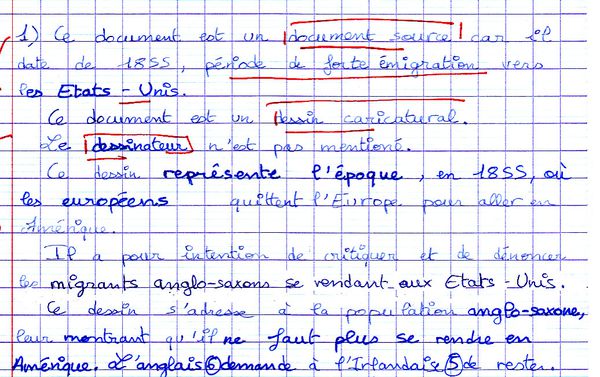 1) Ce document est un document source car il
date de 1855, période de forte émigration vers
les Etats - Unis.
Ce document est un dessin caricatural.
Le dessinateur n'est pas mentioné.
Ce dessin représente l'époque, en 1855, où
les européens quittent l'Europe pour aller en
Amérique.
Il a pour intention de critiquer et de dénoncer
les migrants anglo-saxons se rendant aux Etats - Unis.
Ce dessin s'adresse à la population anglo-saxone,
leur montrant qu'il ne faut plus se rendre en
Amérique. L'anglais ⑥ demande à l'Irlandais ⑤ de rester.